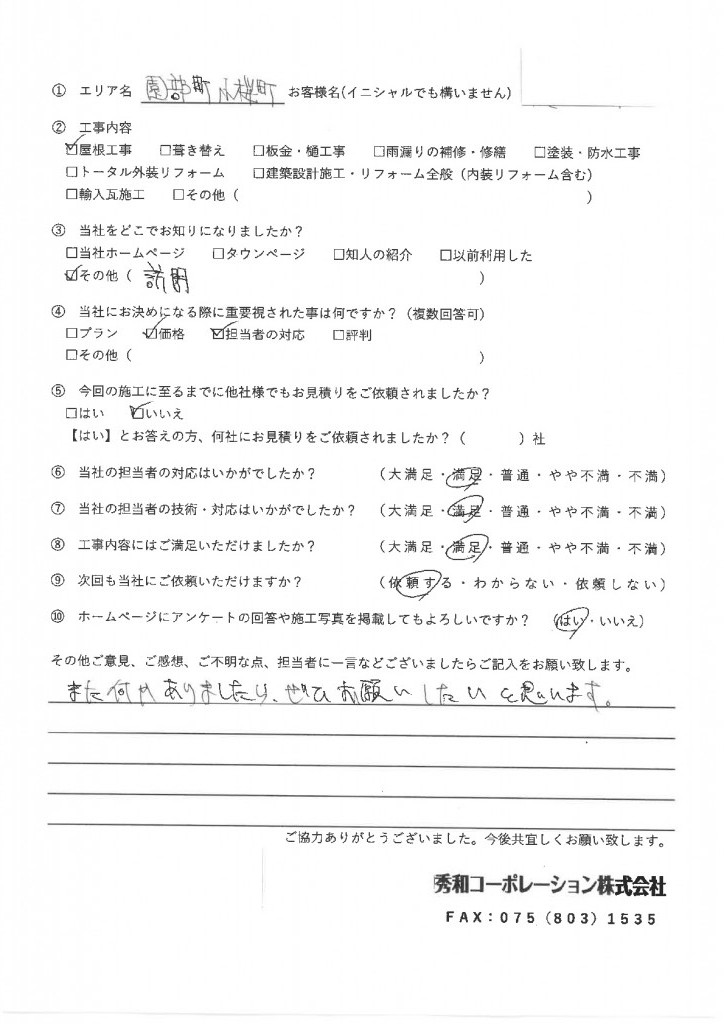 ① エリア名 園部町 小桜町 お客様名(イニシャルでも構いません)
② 工事内容
☑屋根工事 □葺き替え □板金・樋工事 □雨漏りの補修・修繕 □塗装・防水工事
□トータル外装リフォーム □建築設計施工・リフォーム全般（内装リフォーム含む）
□輸入瓦施工 □その他（ ）
③ 当社をどこでお知りになりましたか？
□当社ホームページ □タウンページ □知人の紹介 □以前利用した
☑その他（ 訪問 ）
④ 当社にお決めになる際に重要視された事は何ですか？（複数回答可）
□プラン ☑価格 ☑担当者の対応 □評判
□その他（ ）
⑤ 今回の施工に至るまでに他社様でもお見積りをご依頼されましたか？
□はい ☑いいえ
【はい】とお答えの方、何社にお見積りをご依頼されましたか？（ ）社
⑥ 当社の担当者の対応はいかがでしたか？ （大満足・満足・普通・やや不満・不満）
⑦ 当社の担当者の技術・対応はいかがでしたか？ （大満足・満足・普通・やや不満・不満）
⑧ 工事内容にはご満足いただけましたか？ （大満足・満足・普通・やや不満・不満）
⑨ 次回も当社にご依頼いただけますか？ （依頼する・わからない・依頼しない）
⑩ ホームページにアンケートの回答や施工写真を掲載してもよろしいですか？ （はい・いいえ）
その他ご意見、ご感想、ご不明な点、担当者に一言などございましたらご記入をお願い致します。
また何かありましたら、ぜひお願いしたいと思います。
ご協力ありがとうございました。今後共宜しくお願い致します。
秀和コーポレーション株式会社
FAX：075（803）1535